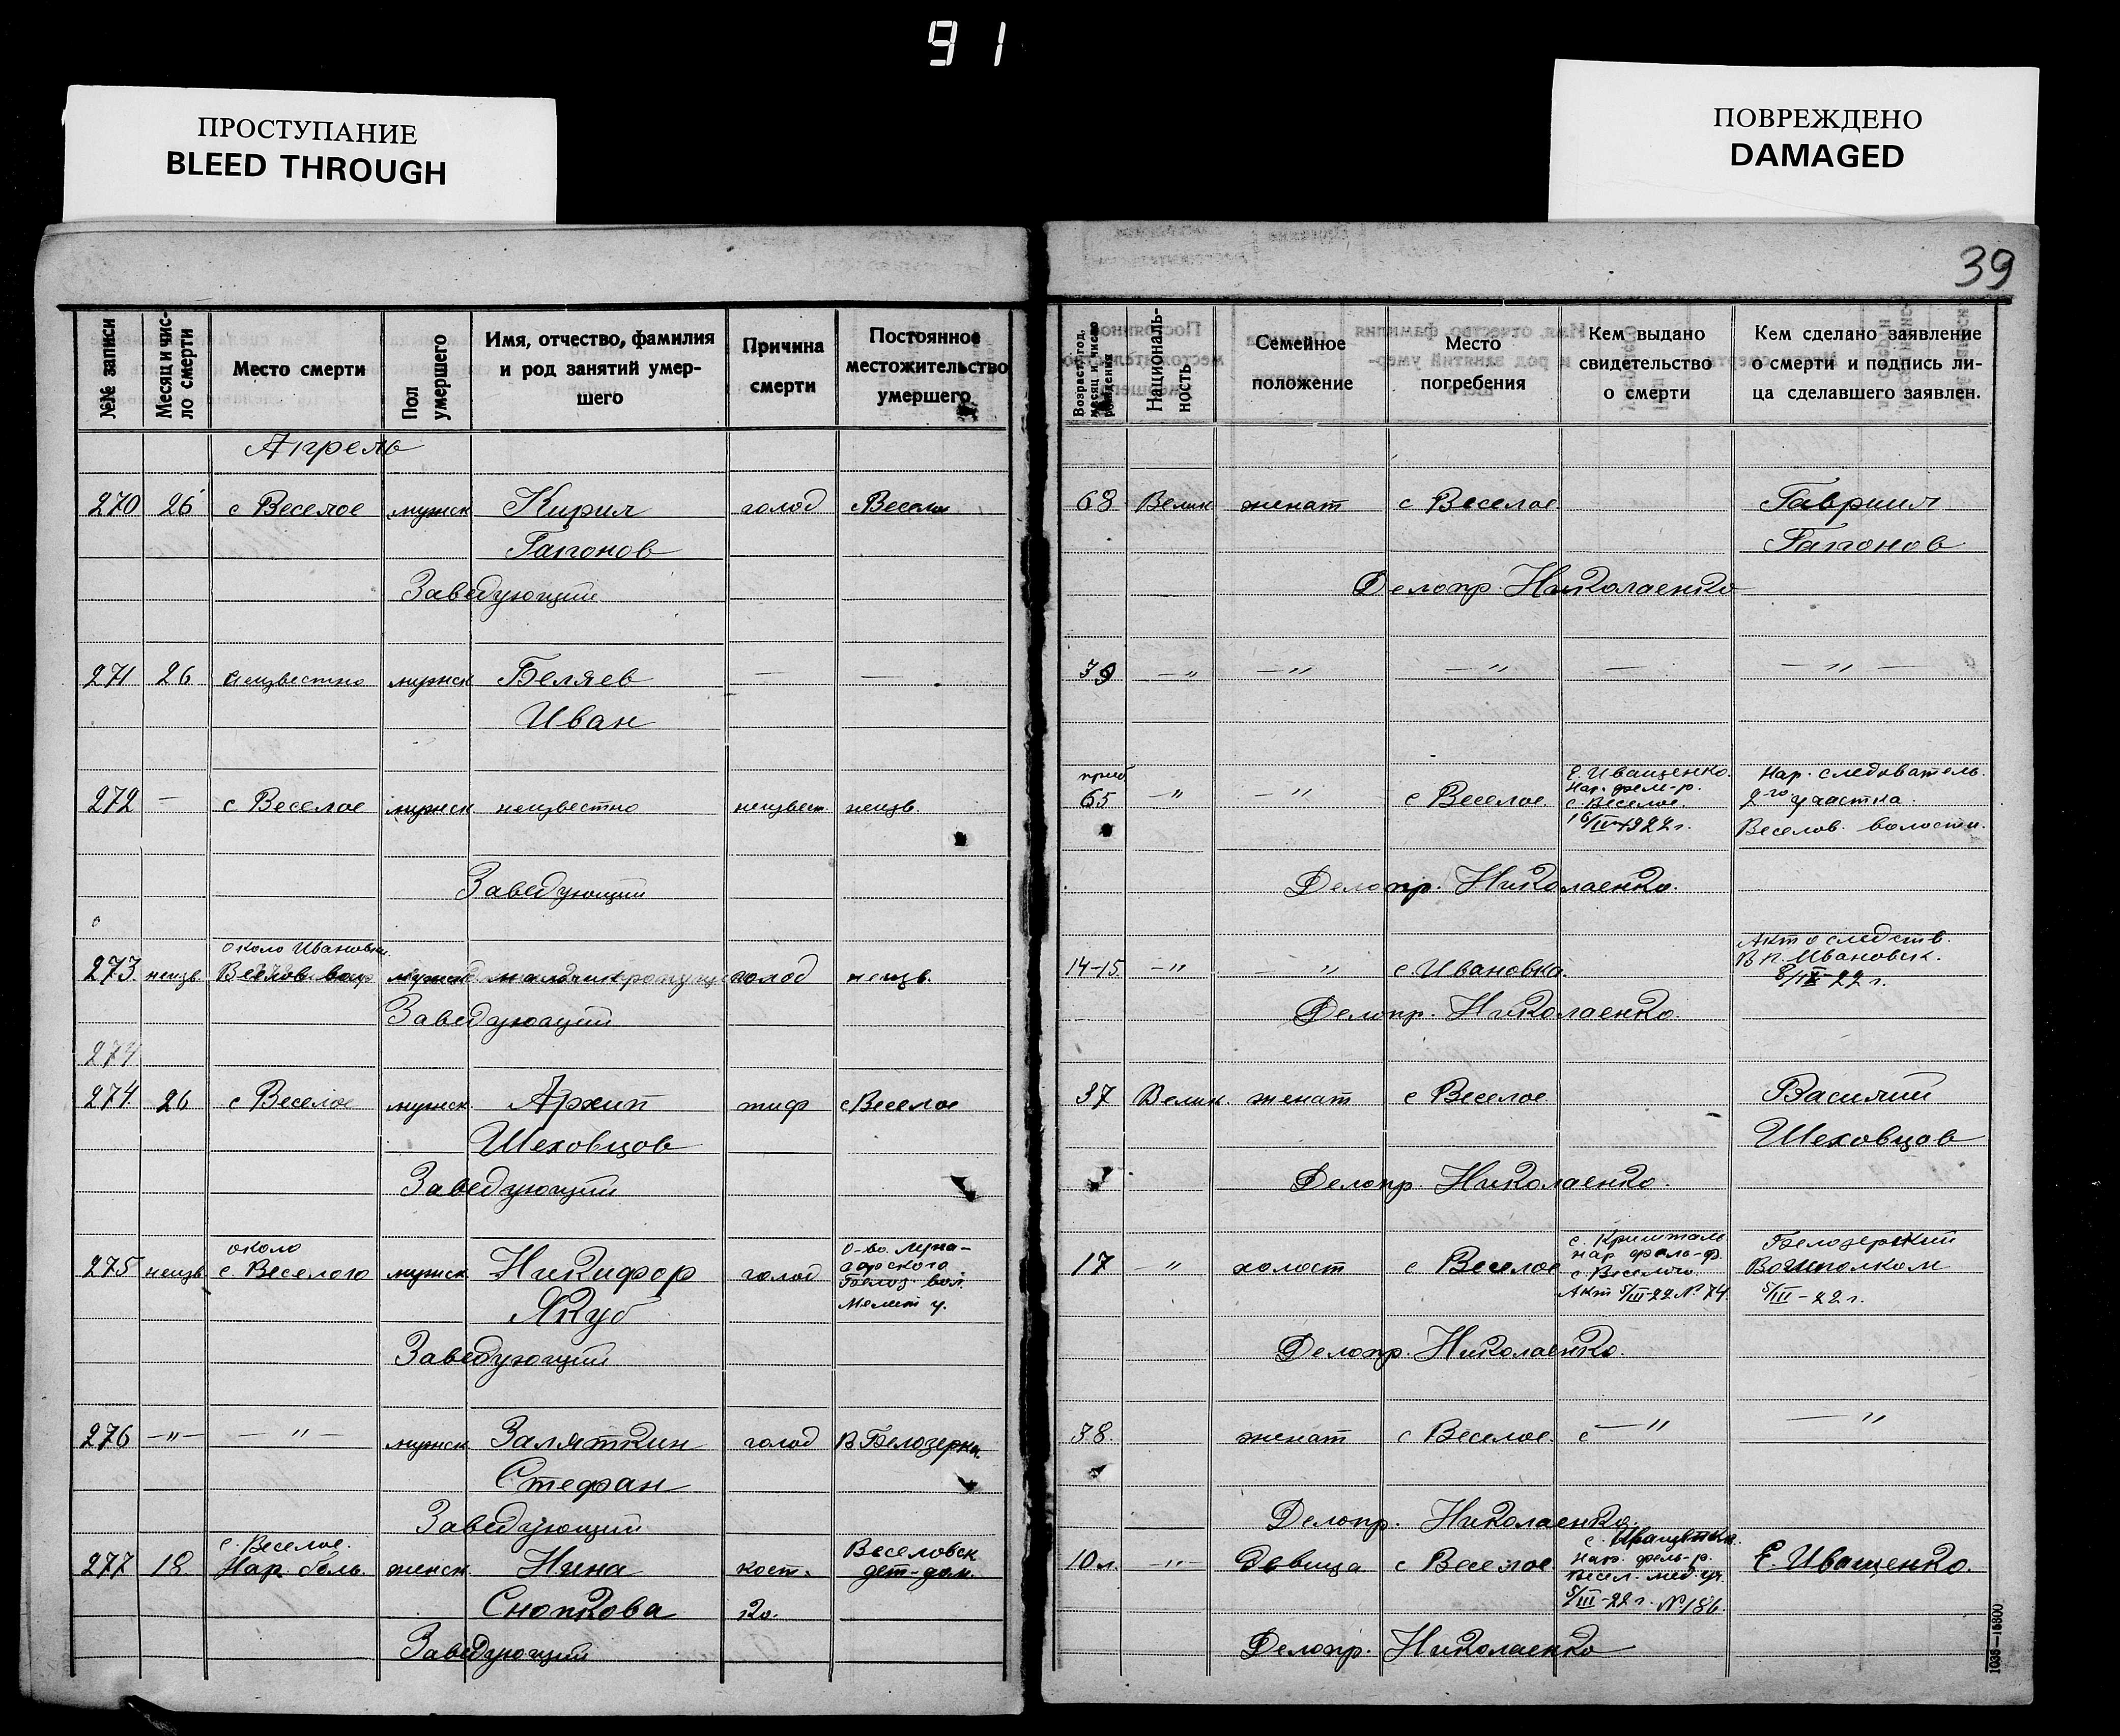 91
ПРОСТУПАНИЕ
BLEED THROUGH
ПОВРЕЖДЕНО
DAMAGED
39
№№ записи
Месяц и чис-
ло смерти
Место смерти
Пол
умершего
Имя, отчество, фамилия
и род занятий умер-
шего
Причина
смерти
Постоянное
местожительство
умершего
Возраст, год,
месяц и число
рождения
Националь-
ность
Семейное
положение
Место
погребения
Кем выдано
свидетельство
о смерти
Кем сделано заявление
о смерти и подпись ли-
ца сделавшего заявлен.
Апрель
270 26 с Веселое мужск Кирил голод с Веселое 68 Велик женат с Веселое Гавриил
Гапонов Гапонов
Заведующий Делопр. Николаенко
271 26 неизвестно мужск Беляев — — 39 —〃 —〃 —〃 — —〃—
Иван
272 — с Веселое мужск неизвестно неизвест. неизв. приб. 65 〃 —〃 с Веселое
Е. Иващенко.
Нар. фель-р.
с. Веселое.
16/IV-1922 г.
Нар. следователь.
2го участка.
Веселов. волости.
Заведующий Делопр. Николаенко.
около Ивановки.
273. неизв. Веселов вол мужск мальчик голод неизв. 14-15. —〃 —〃 с. Ивановка.
Акт о следств.
В п. Ивановск.
8/IV-22 г.
Заведующий Делопр. Николаенко.
274
274. 26 с Веселое мужск. Архип тиф с Веселое 37 Велик женат с Веселое Василий
Шеховцов Шеховцов
Заведующий Делопр. Николаенко.
около
275 неизв с. Веселого мужск Никифор голод
Якуб
О-во
Белоз. вол.
Мелит у.
17 〃 холост с Веселое
с. Кришталь
нар фель-р.
с Веселого.
Акт 5/III-22 № 74.
Белозерский
Волисполком
5/III-22 г.
Заведующий Делопр. Николаенко.
276 —〃— —〃— мужск Заляткин голод В Белозерка. 38. женат с Веселое. с —〃 —〃
Стефан
Заведующий Делопр. Николаенко.
с. Веселое.
277 18. Нар. боль. женск. Нина кост.
Снопкова ко.
Веселовск
дет-дом.
10 л. —〃— девица с Веселое
с. Иващенко.
нар. фель-р.
Весел. мед. уч.
5/III-22 г. № 186.
Е. Иващенко.
Заведующий Делопр. Николаенко
1035—15800